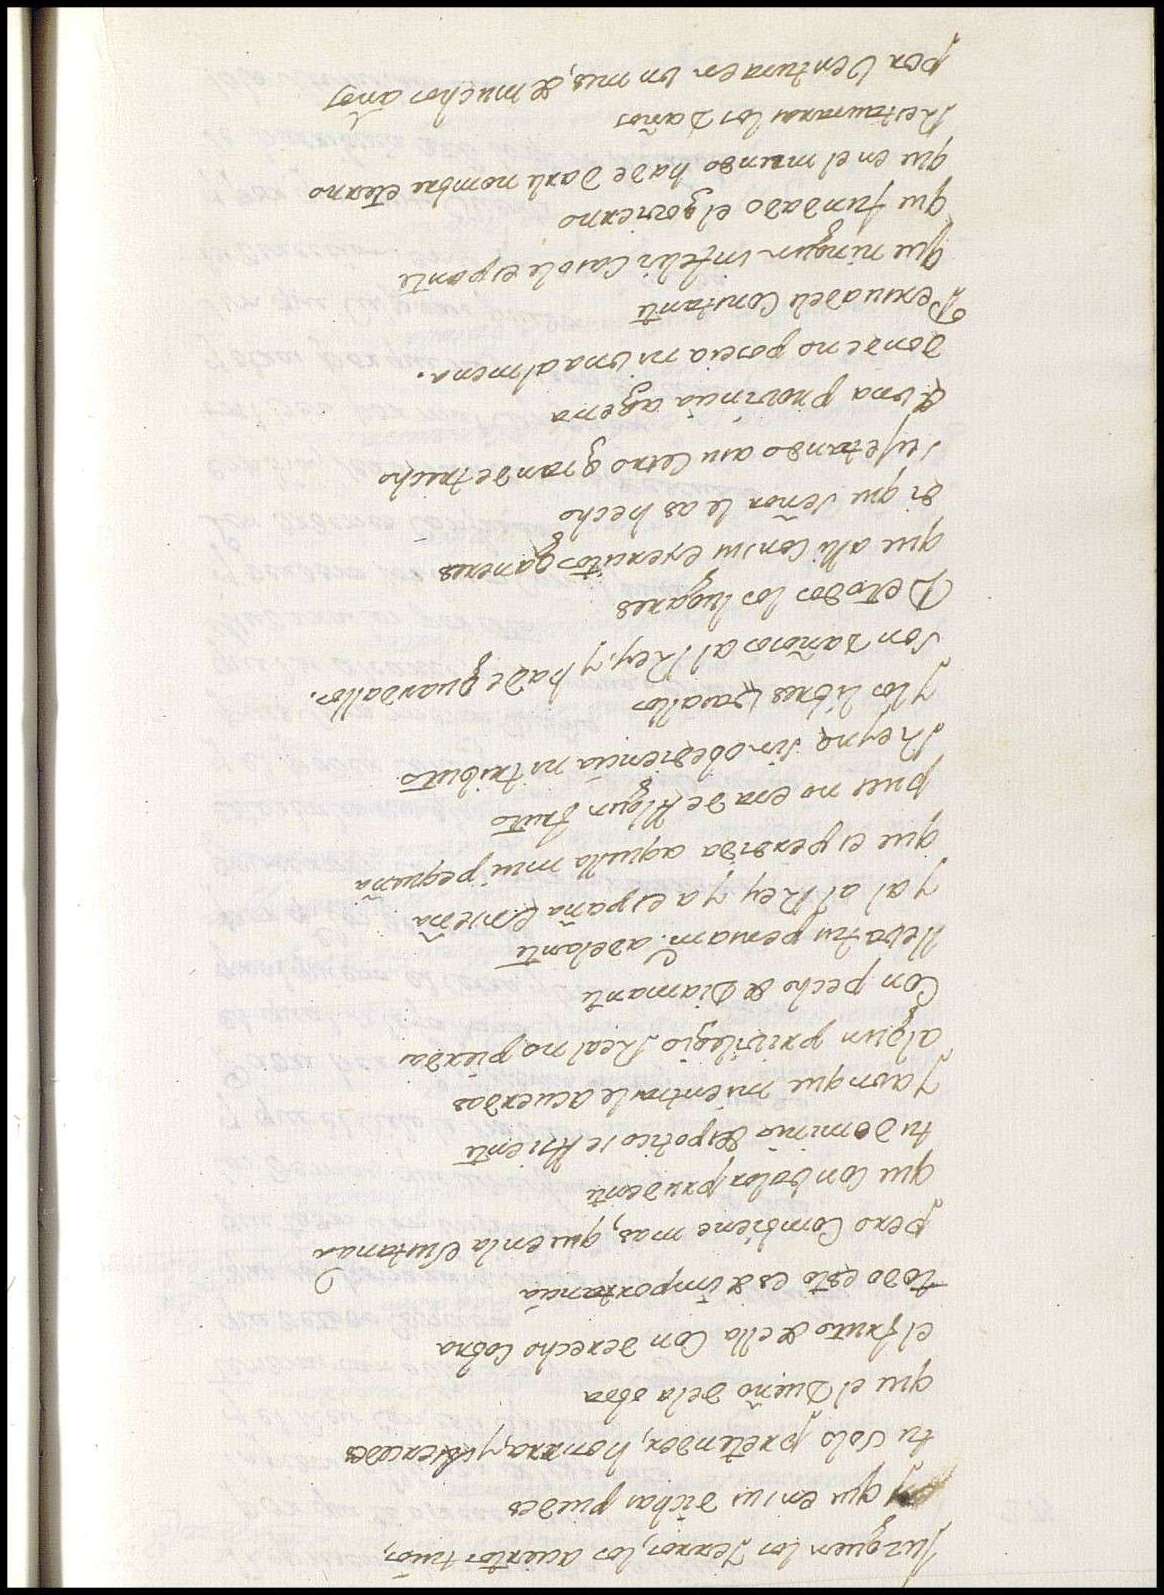 Juzguen los Jerros, los aciertos tuios,
y que en sus dichas puedes
tu solo pretender, honrra, y Mercedes
que el Dueño dela obra
el fruto de ella Con derecho Cobra
todo esto es de importancia
pero Combiene mas, que en la Sustancia
que Con balor prudente
tu dominio despotico se Asiente
Jaunque mientras le acuerdas
algun privilegio Real no pierdas
Con pecho de Diamante
lleva tu pensam.to adelante
y al al Rey y a españa enseña
que es perdida aquella mui pequeña
pues no era de Algun fruto
Reyno, sin obediencia ni tributo
y los libres Vasallos
son dañosos al Rey, y ha de guardallos.
De todos los lugares
que alli Con sus exercitos ganares
di que señor le as hecho
sujetando a su Cetro grande trecho
de una provincia agena
donde no poseia ni una almena.
Persuadele Constante
que ningun infeliz Caso le espante
que fundado el govierno
que en el mundo ha de darle nombre eterno
Restauraras los Daños
por Ventura en un mes, de muchos años